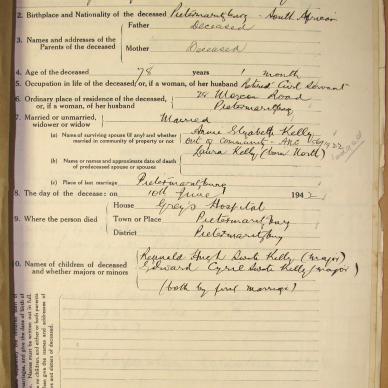 2. Birthplace and Nationality of the deceased Pietermaritzburg - South African
3. Names and addresses of the Parents of the deceased
Father Deceased
Mother Deceased
4. Age of the deceased 78 years 1 month
5. Occupation in life of the deceased, or if a woman, of her husband Retired Civil Servant
6. Ordinary place of residence of the deceased, or, if a woman, of her husband
Road
Pietermaritzburg
7. Married or unmarried, widower or widow Married
(a) Name of surviving spouse (if any) and whether married in community of property or not
Annie Elizabeth Kelly
out of community - ANC
(b) Name or names and approximate date of death of predeceased spouse or spouses
Laura Kelly (born North)
(c) Place of last marriage Pietermaritzburg
8. The day of the decease: on 10th June 194
9. Where the person died
House Grey's Hospital
Town or Place Pietermaritzburg
District Pietermaritzburg
0. Names of children of deceased and whether majors or minors
Reynald Hugh Swete Kelly (major)
Edward Cyril Swete Kelly (major)
(both by first marriage)